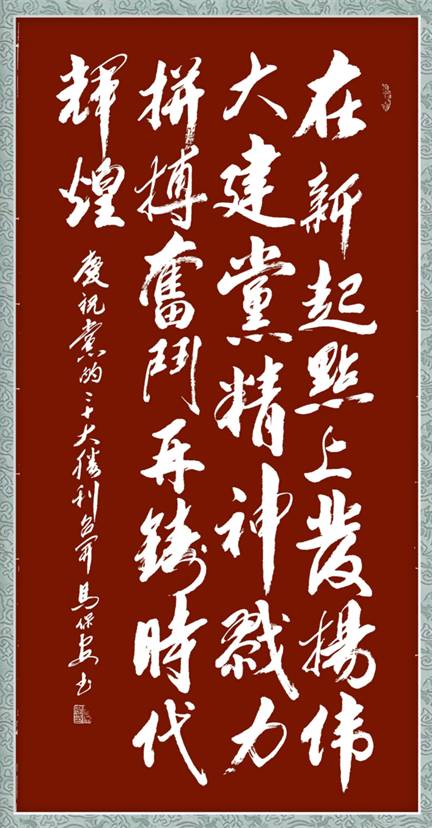 在新起點上發揚伟
大建黨精神戮力
拼搏奮鬥再鑄時代
輝煌
慶祝黨的二十大勝利召開 馬保安书